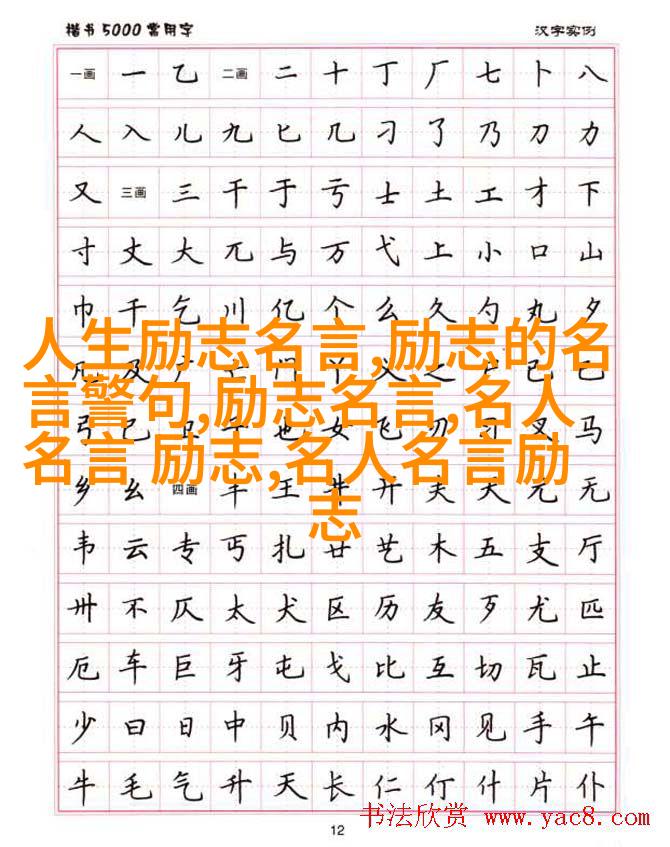 楷书5000常用字 汉字实例
一画 一 乙 二画 二 十 丁 厂 七 卜 八
人 入 儿 九 匕 几 刁 了 乃 刀 力
又 三画 三 干 于 亏 士 土 工 才 下
寸 丈 大 兀 与 万 弋 上 小 口 山
巾 千 乞 川 亿 个 么 久 勺 丸 夕
人生励志名言,励志的名
言警句,励志名言,名人
名言 励志,名人名言励
志
马
乡 幺 四画 丰 王 井 开 夫 天 元 无
韦 云 专 丐 扎 廿 艺 木 五 支 厅
卅 不 仄 太 犬 区 历 友 歹 尤 匹
厄 车 巨 牙 屯 戈 比 互 切 瓦 止
少 曰 日 中 贝 内 水 冈 见 手 午
牛 毛 气 升 夭 长 仁 仃 什 片 仆
12
书法欣赏 www.yac8.com